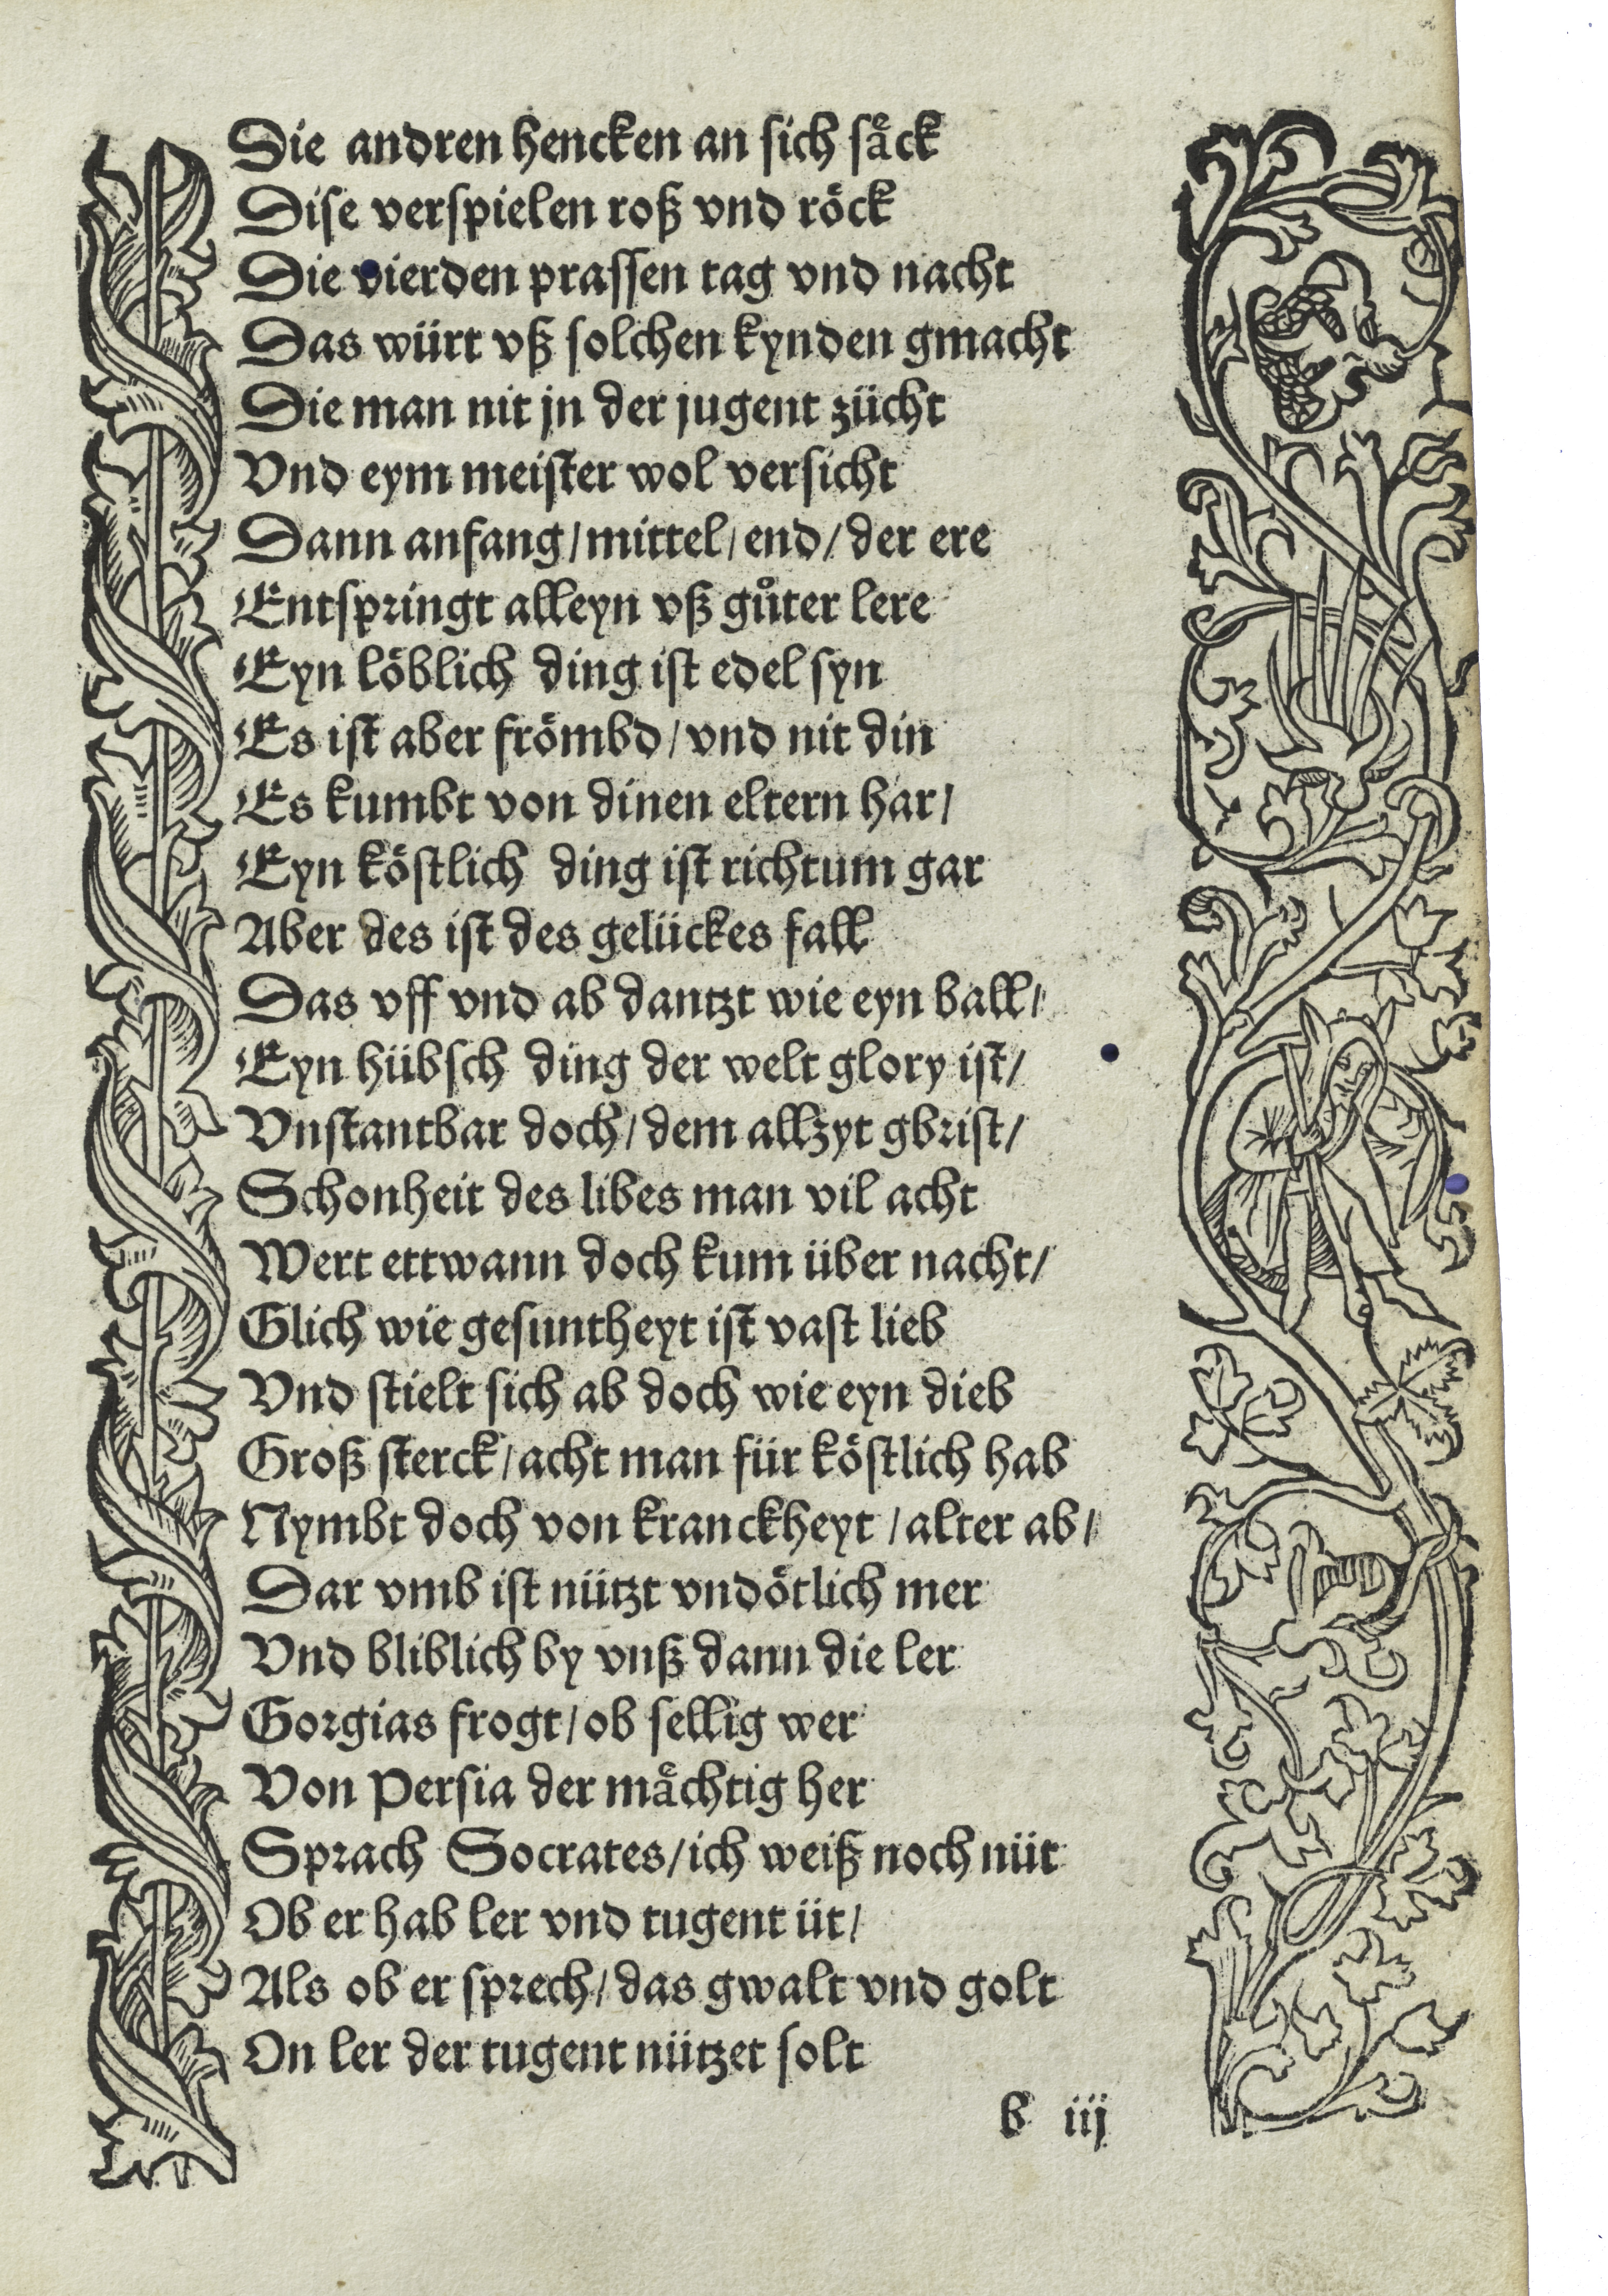 Die andren hencken an sich saͤck
Dise verspielen roß vnd roͤck
Die vierden prassen tag vnd nacht
Das würt vß solchen kynden gmacht
Die man nit jn der jugent zücht
Vnd eym meister wol versicht
Dann anfang/mittel/end/der ere
Entspringt alleyn vß guͦter lere
Eyn loͤblich ding ist edel syn
Es ist aber froͤmbd/vnd nit din
Es kumbt von dinen eltern har/
Eyn koͤstlich ding ist richtum gar
Aber des ist des gelückes fall
Das vff vnd ab dantzt wie eyn ball/
Eyn hübsch ding der welt glory ist/
Vnstantbar doch/dem allzyt gbrist/
Schonheit des libes man vil acht
Wert ettwann doch kum über nacht/
Glich wie gesuntheyt ist vast lieb
Vnd stielt sich ab doch wie eyn dieb
Groß sterck/acht man für koͤstlich hab
Nymbt doch von kranckheyt/alter ab/
Dar vmb ist nützt vndoͤtlich mer
Vnd bliblich by vnß dann die ler
Gorgias frogt/ob sellig wer
Von Persia der maͤchtig her
Sprach Socrates/ich weiß noch nüt
Ob er hab ler vnd tugent üt/
Als ob er sprech/das gwalt vnd golt
On ler der tugent nützet solt
b iij